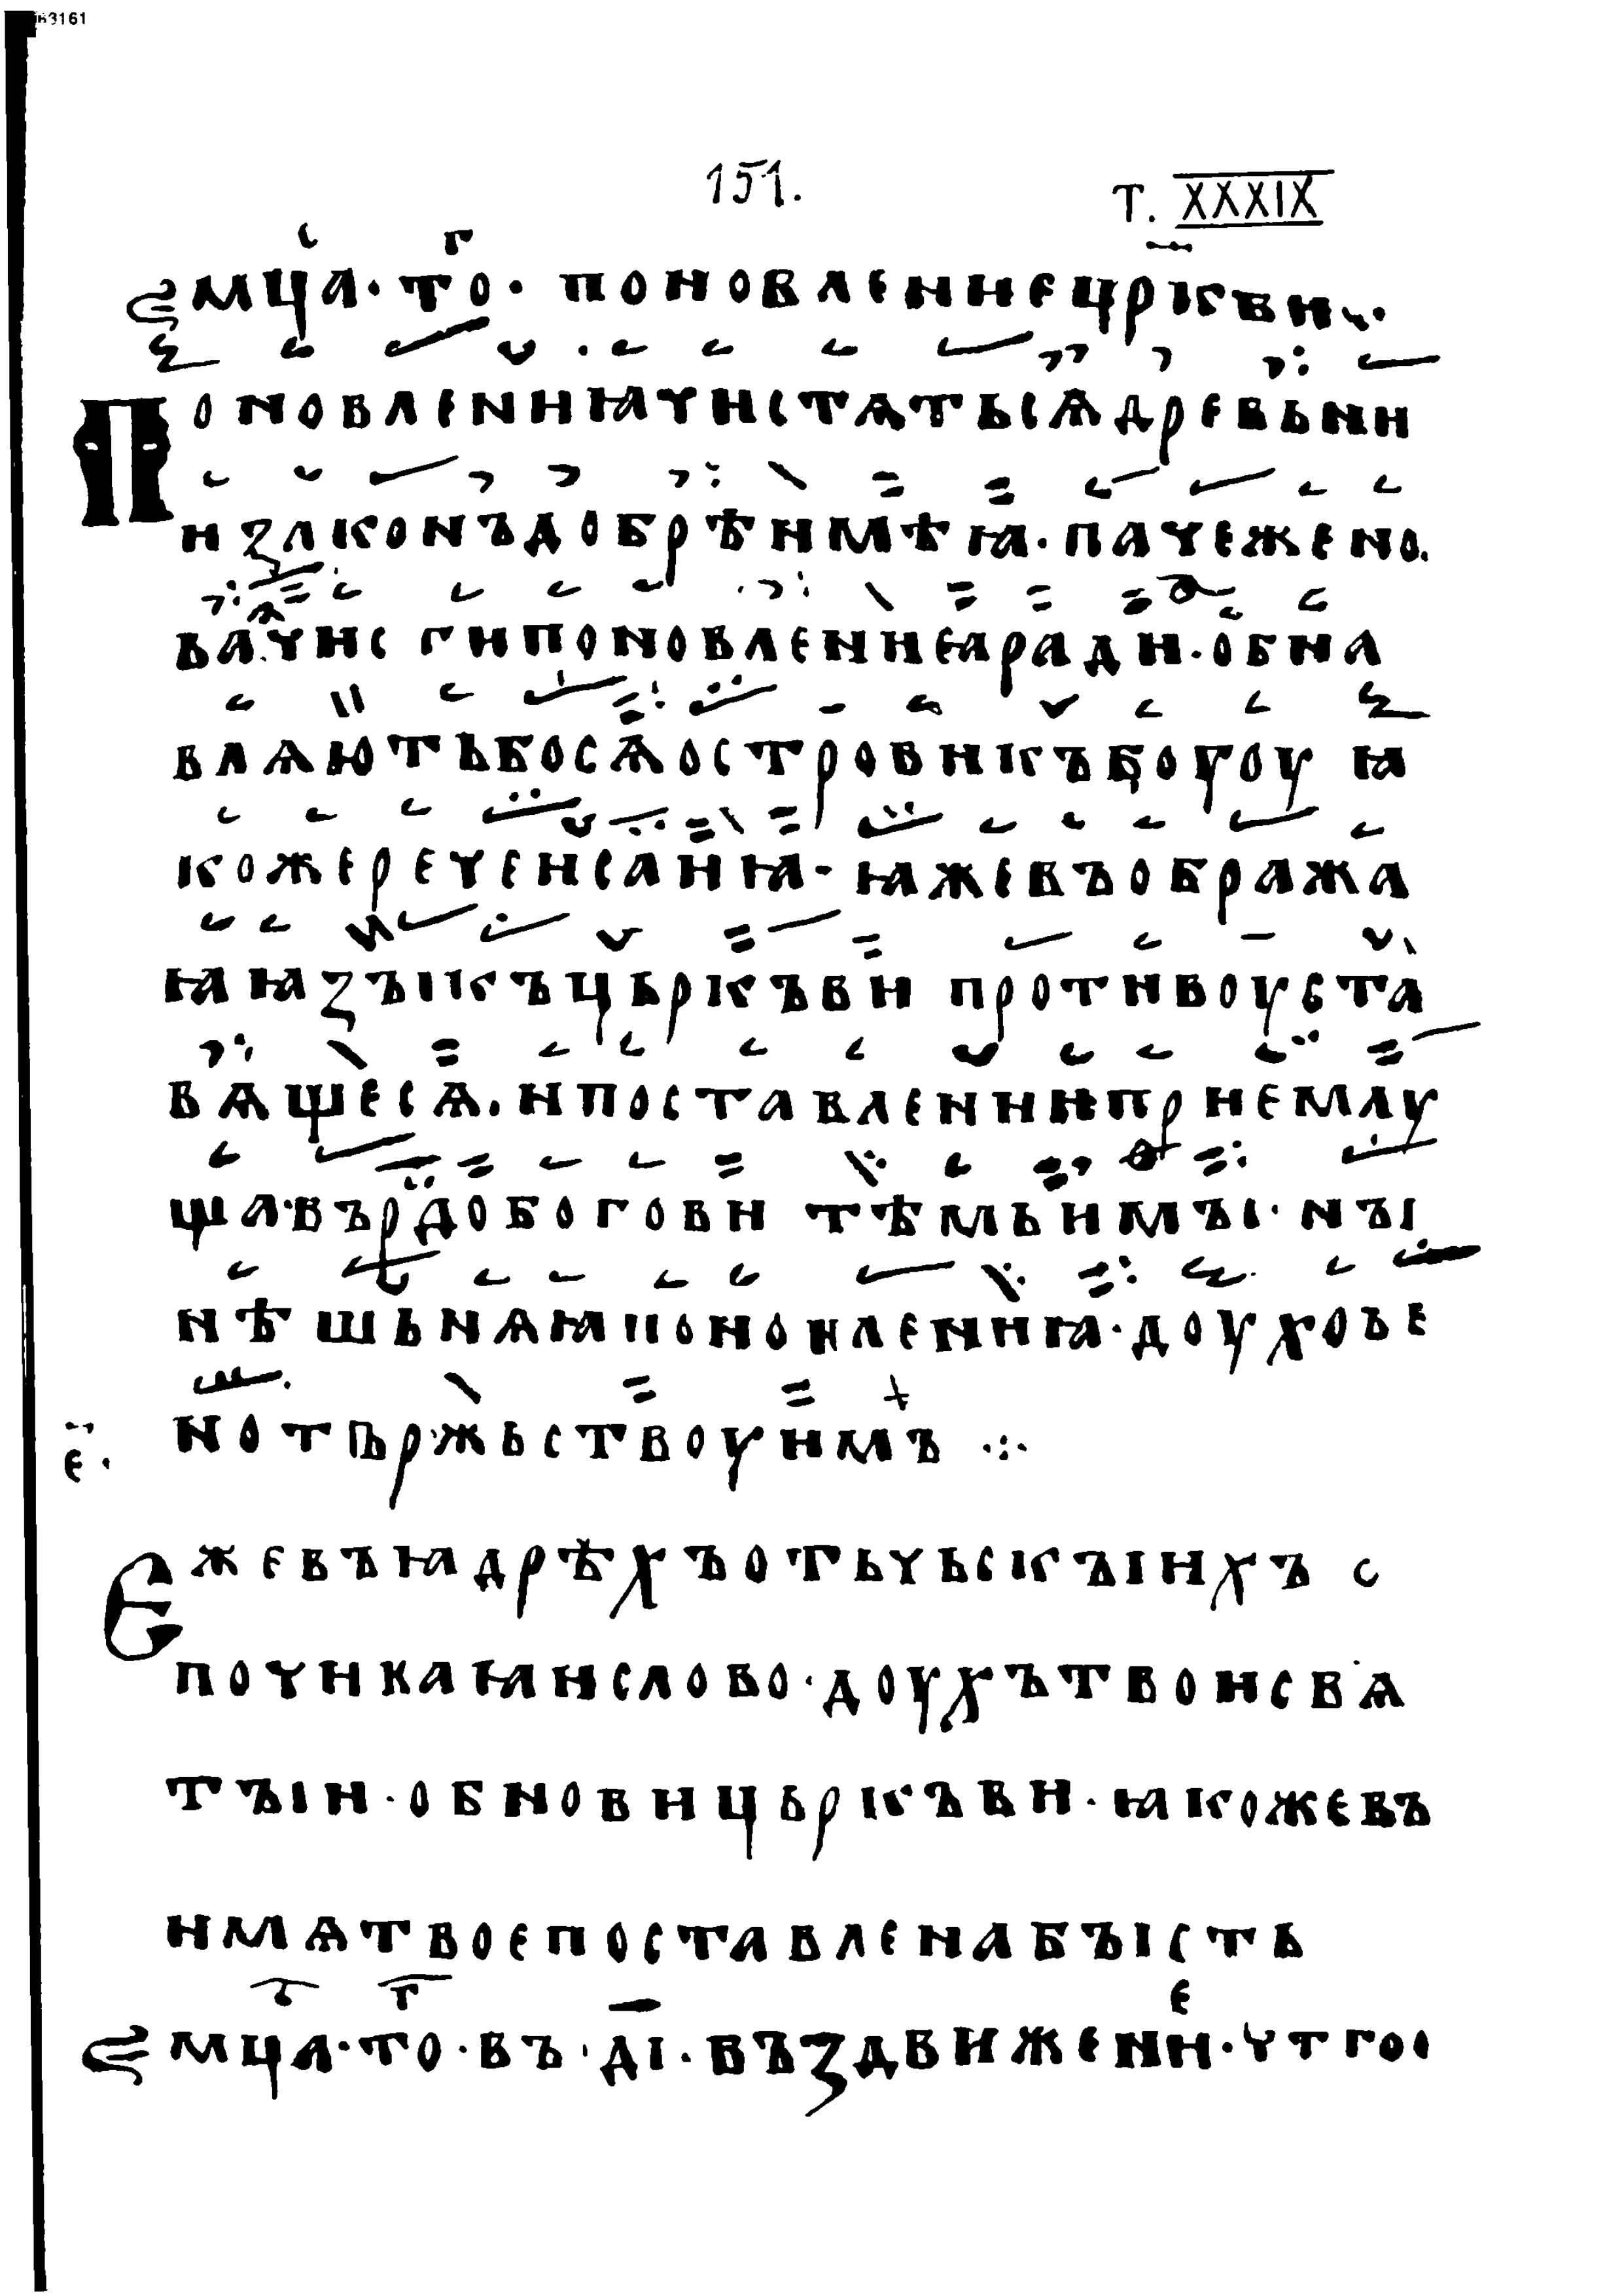 в3161
151.
Т. XXXIX
мц҃а · то г҃ · поновлениецр҃кви
Поновлениꙗчиститьсѧдревьнии
изаконъдобрѣимѣꙗ · пачежено
ва чис гипоновлениеꙗради · обна
влѧютьбосѧостровикъбогоу ꙗ
кожереченсаиꙗ · ꙗжевъобража
ꙗꙗзъıкъцьркъви противоуста
вѧщесѧ · ипоставлениıприемлу
ща · въ҃рдобогови тѣмьимъı · нъı
нѣшьнѧꙗпоновлениꙗ · доуховье
нотържьствоуимъ
е҃ ·
Ежевъꙗдрѣхъотьчьскъıихъ с
почиваꙗислово · доухътвоисвѧ
тъıи · обновицьркъви · ꙗкожевъ
имѧтвоепоставленабъıсть
мц҃а · то г҃ · въ · д҃ı · въздвижени е · ѹтгос